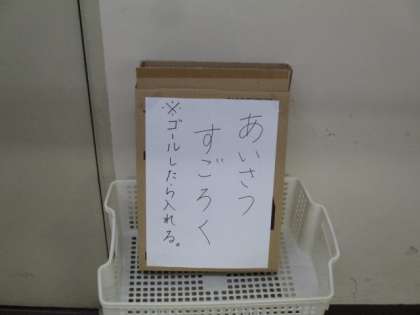 あいさつ
すごろく
※ゴールしたら入れる。